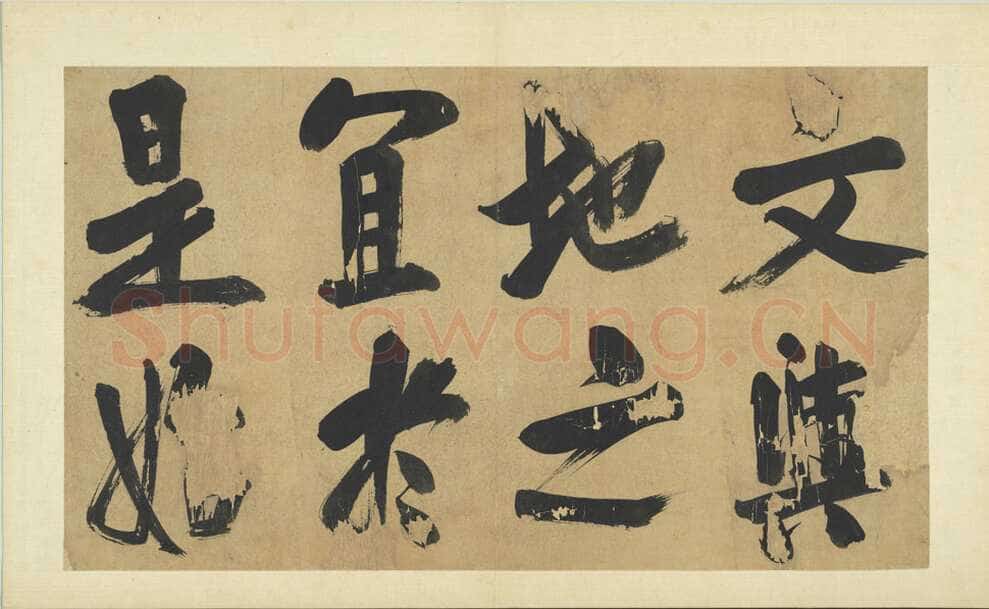 文與
地之
宜於
是始
Shufawang.CN